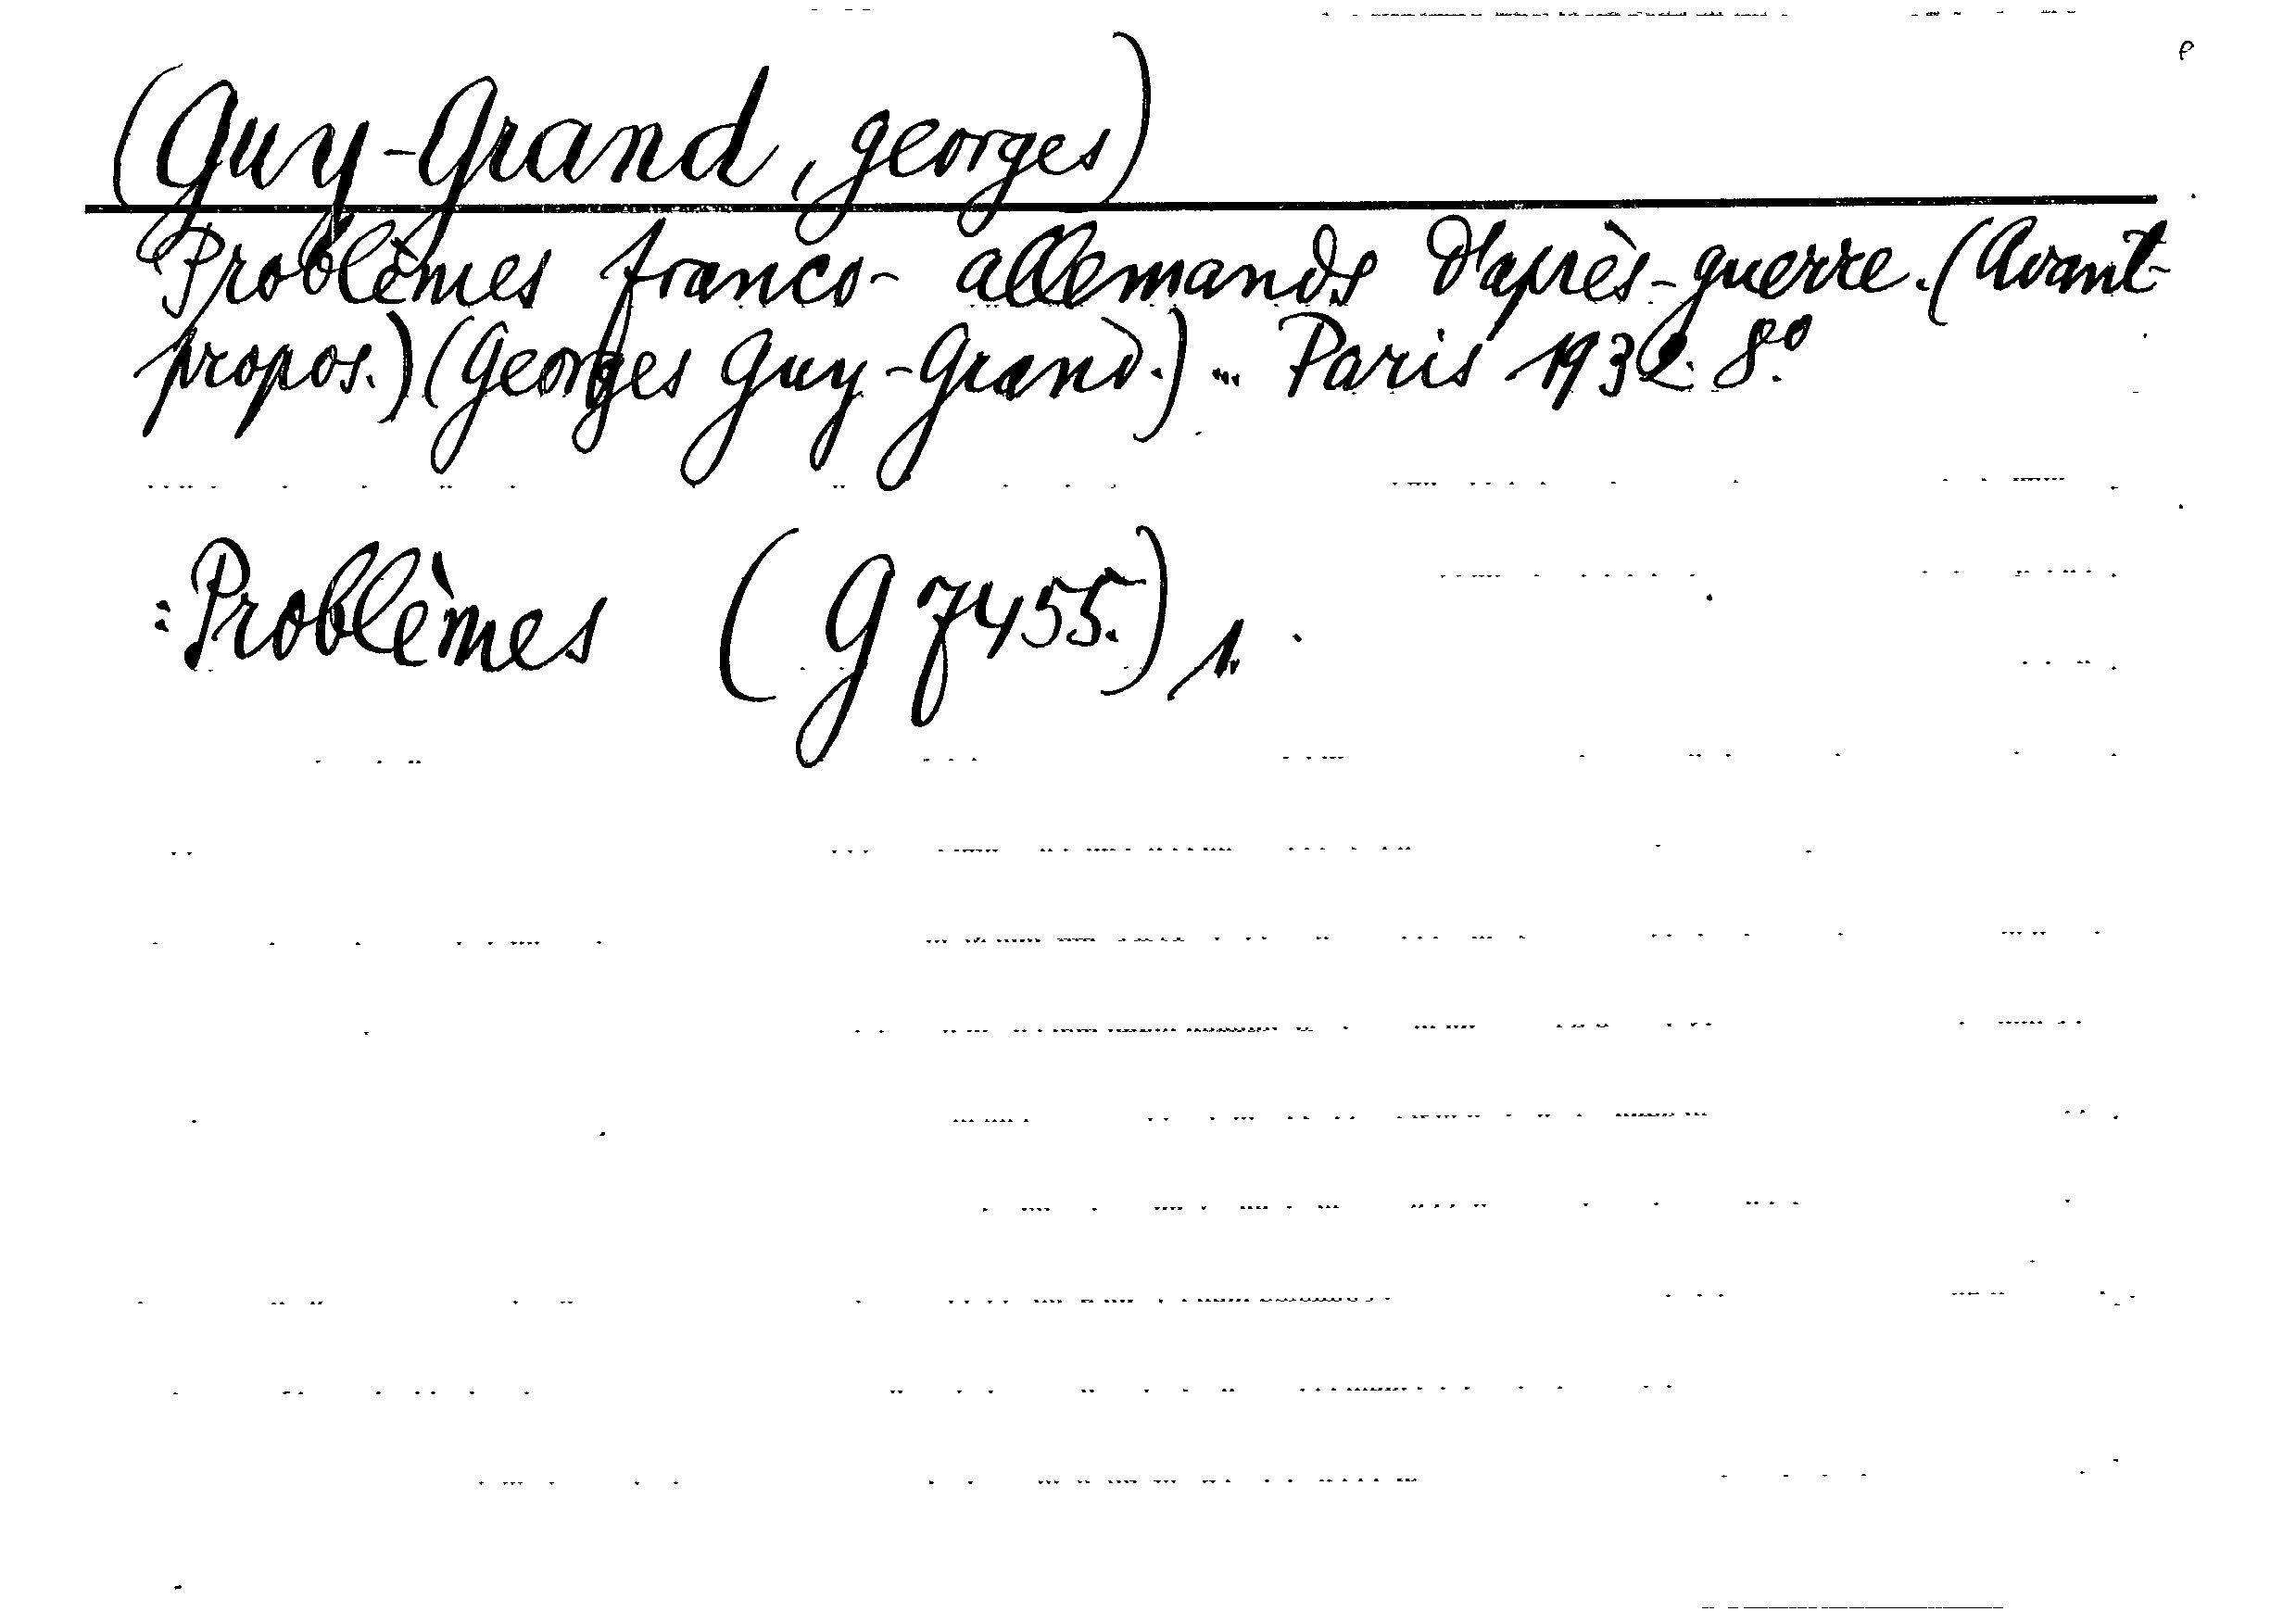 (Guy-Grand, Georges)
Problèmes franco-allemands d'après-guerre. (Avant-
propos.) (Georges Guy-Grand.) ... Paris 1932. 8º
: Problèmes (G 7455.) 1.